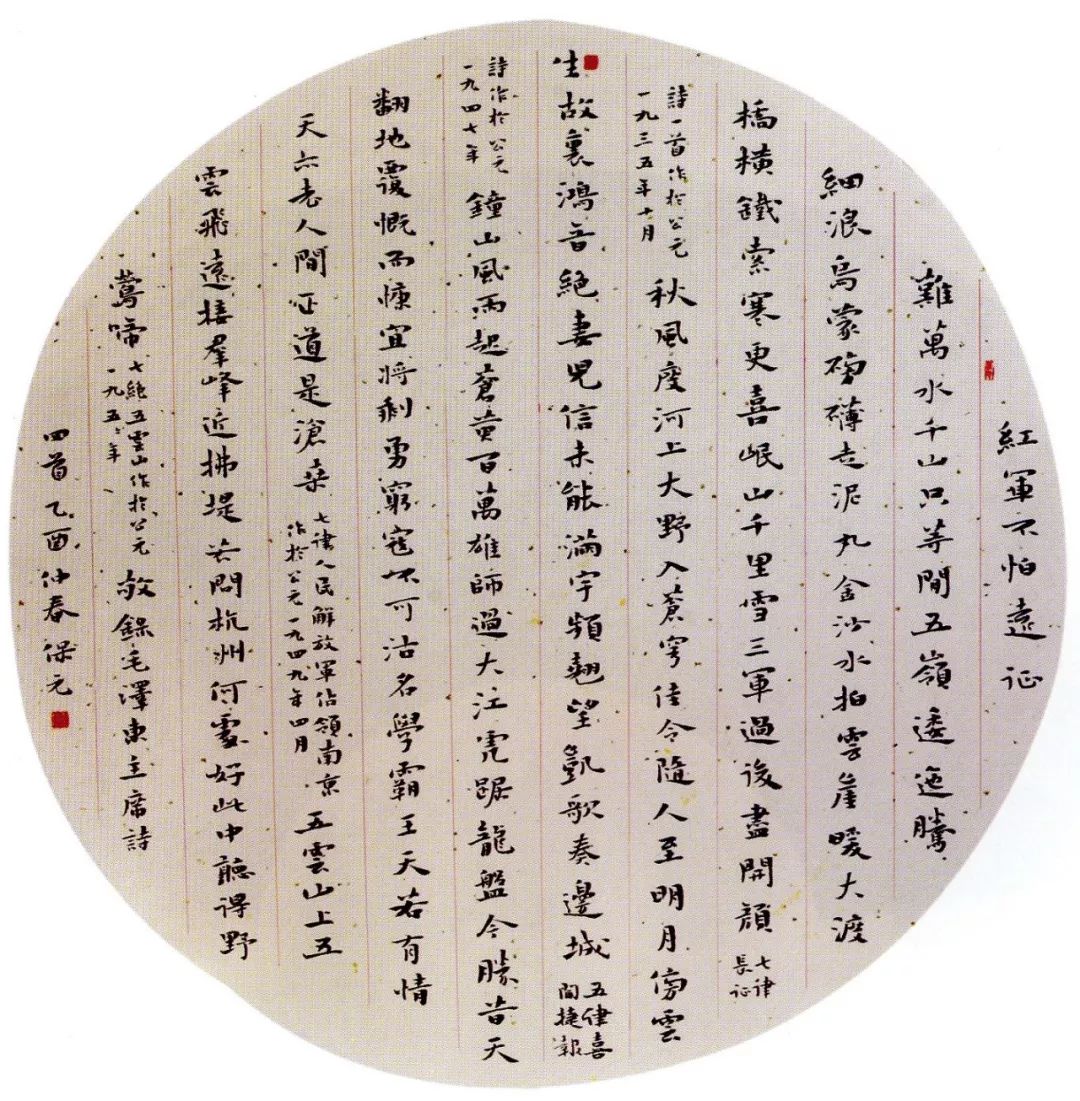 紅軍不怕遠征
難萬水千山只等閒五嶺逶迤騰
細浪烏蒙磅礴走泥丸金沙水拍雲崖暖大渡
橋橫鐵索寒更喜岷山千里雪三軍過後盡開顏七律長征
詩一首作於公元一九三五年十月秋風度河上大野入蒼穹佳令隨人至明月傍雲
生故裏鴻音絕妻兒信未能滿宇頻翹望凱歌奏邊城五律喜聞捷報
詩作於公元一九四七年鐘山風雨起蒼黃百萬雄師過大江虎踞龍盤今勝昔天
翻地覆慨而慷宜將剩勇窮寇不可沽名學霸王天若有情
天亦老人間正道是滄桑七律人民解放軍佔領南京作於公元一九四九年四月五雲山上五
雲飛遠接羣峰近拂堤若問杭州何處好此中聽得野
鶯啼七絕五雲山作於公元一九五〻年敬錄毛澤東主席詩
四首乙酉仲春保元